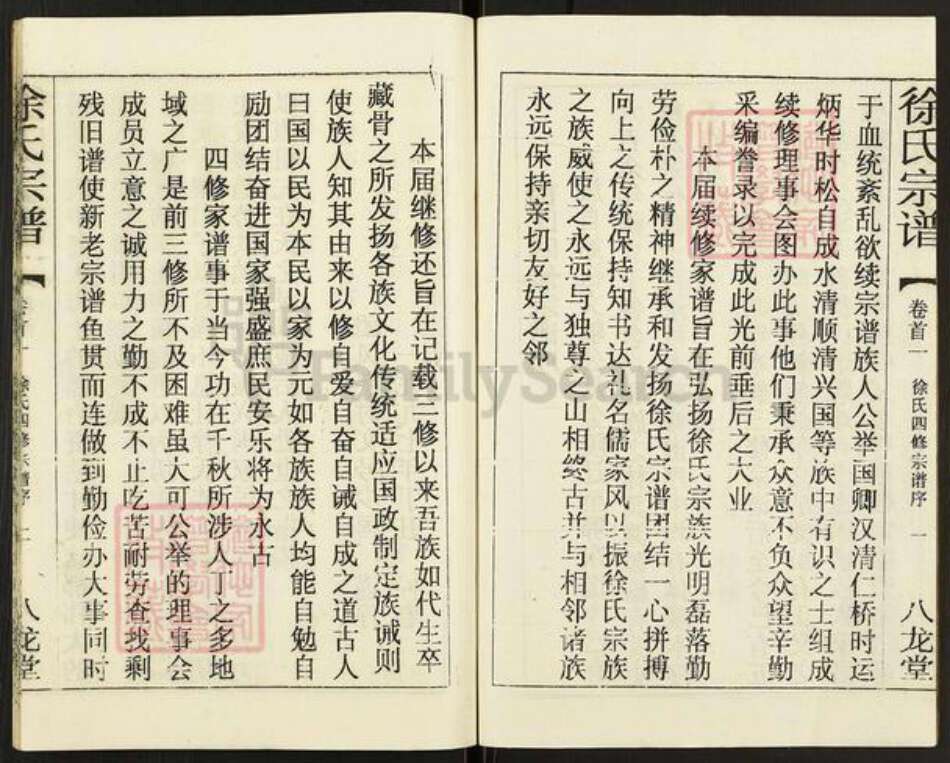 徐氏宗谱
卷首一
徐氏四修宗谱序
一
八龙堂
于血统紊乱欲续宗谱族人公举国卿汉清仁桥时运
炳华时松自成水清顺清兴国等族中有识之士组成
续修理事会图办此事他们秉承众意不负众望辛勤
采编誊录以完成此光前垂后之大业
本届续修家谱旨在弘扬徐氏宗族光明磊落勤
劳俭朴之精神继承和发扬徐氏宗谱团结一心拼搏
向上之传统保持知书达礼名儒家风以振徐氏宗族
之族威使之永远与独尊之山相终古并与相邻诸族
永远保持亲切友好之邻
本届继修还旨在记载三修以来吾族如代生卒
藏骨之所发扬各族文化传统适应国政制定族诫则
使族人知其由来以修自爱自奋自诫自成之道古人
曰国以民为本民以家为元如各族族人均能自勉自
励团结奋进国家强盛庶民安乐将为永古
四修家谱事于当今功在千秋所涉人丁之多地
域之广是前三修所不及困难虽大可公举的理事会
成员立意之诚用力之勤不成不止吃苦耐劳查找剩
残旧谱使新老宗谱鱼贯而连做到勤俭办大事同时
徐氏宗谱
八龙堂
FamilySearch